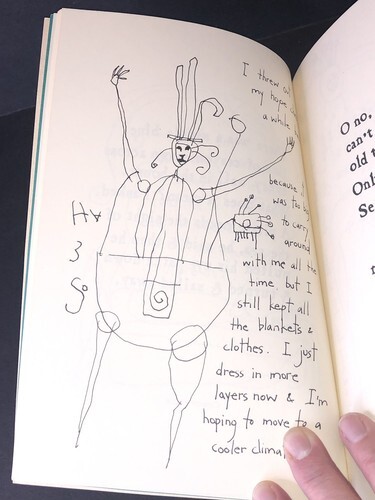 I threw
my hope
a while
because
was too big
to carry
around
with me all the
time but I
still kept all
the blankets &
clothes. I just
dress in more
layers now & I'm
hoping to move to a
cooler
O no,
can't
old
Onl
Se